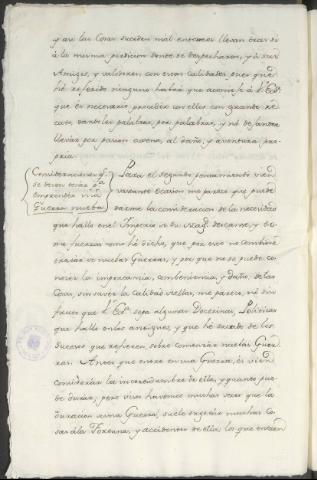 y así las cosas suceden mal entonces llevan tras sí
á la misma perdicion donde se despeñaron, y á sus
Amigos, y valedores, con estas calidades, pues que
hé referido ninguno habrá que aconseje á V. Exª.
que es necesario proceder con ellos con grande re-
cato, dandoles palabras, por palabras, y nó dejandose
llevar por pasion agena, al daño, y aventura pro-
pria.
Consideraciones q.
se deven tener pª.
emprender una
Guerra nueba
Para el segundo pensamiento vien
varias me parece que puede
darme la consideracion de la necesidad
que halla en el Imperio
me fuerza como hé dicha, que por eso no combiene
nuebas Guerras, y por que no se puede co-
nocer la importancia, combeniencia, y daño, de las
Cosas, sin saver la calidad dellas, me parece, nó sin
fruto que V. Exª. sepa algunas Doctrinas, Politicas
que hallo en los antiguos, y que hé sacado de los
Sucesos que refieren sobre comenzar nuebas Guer-
ras. Antes que entre en una Guerra, és bien
considerar la incertidumbre de ella, y quanto pue-
de durar; pero vino havemos muchas veces que la
duracion de una Guerra, suele sugetar muchas Co-
sas á la Fortuna, y accidentes de ella, los que